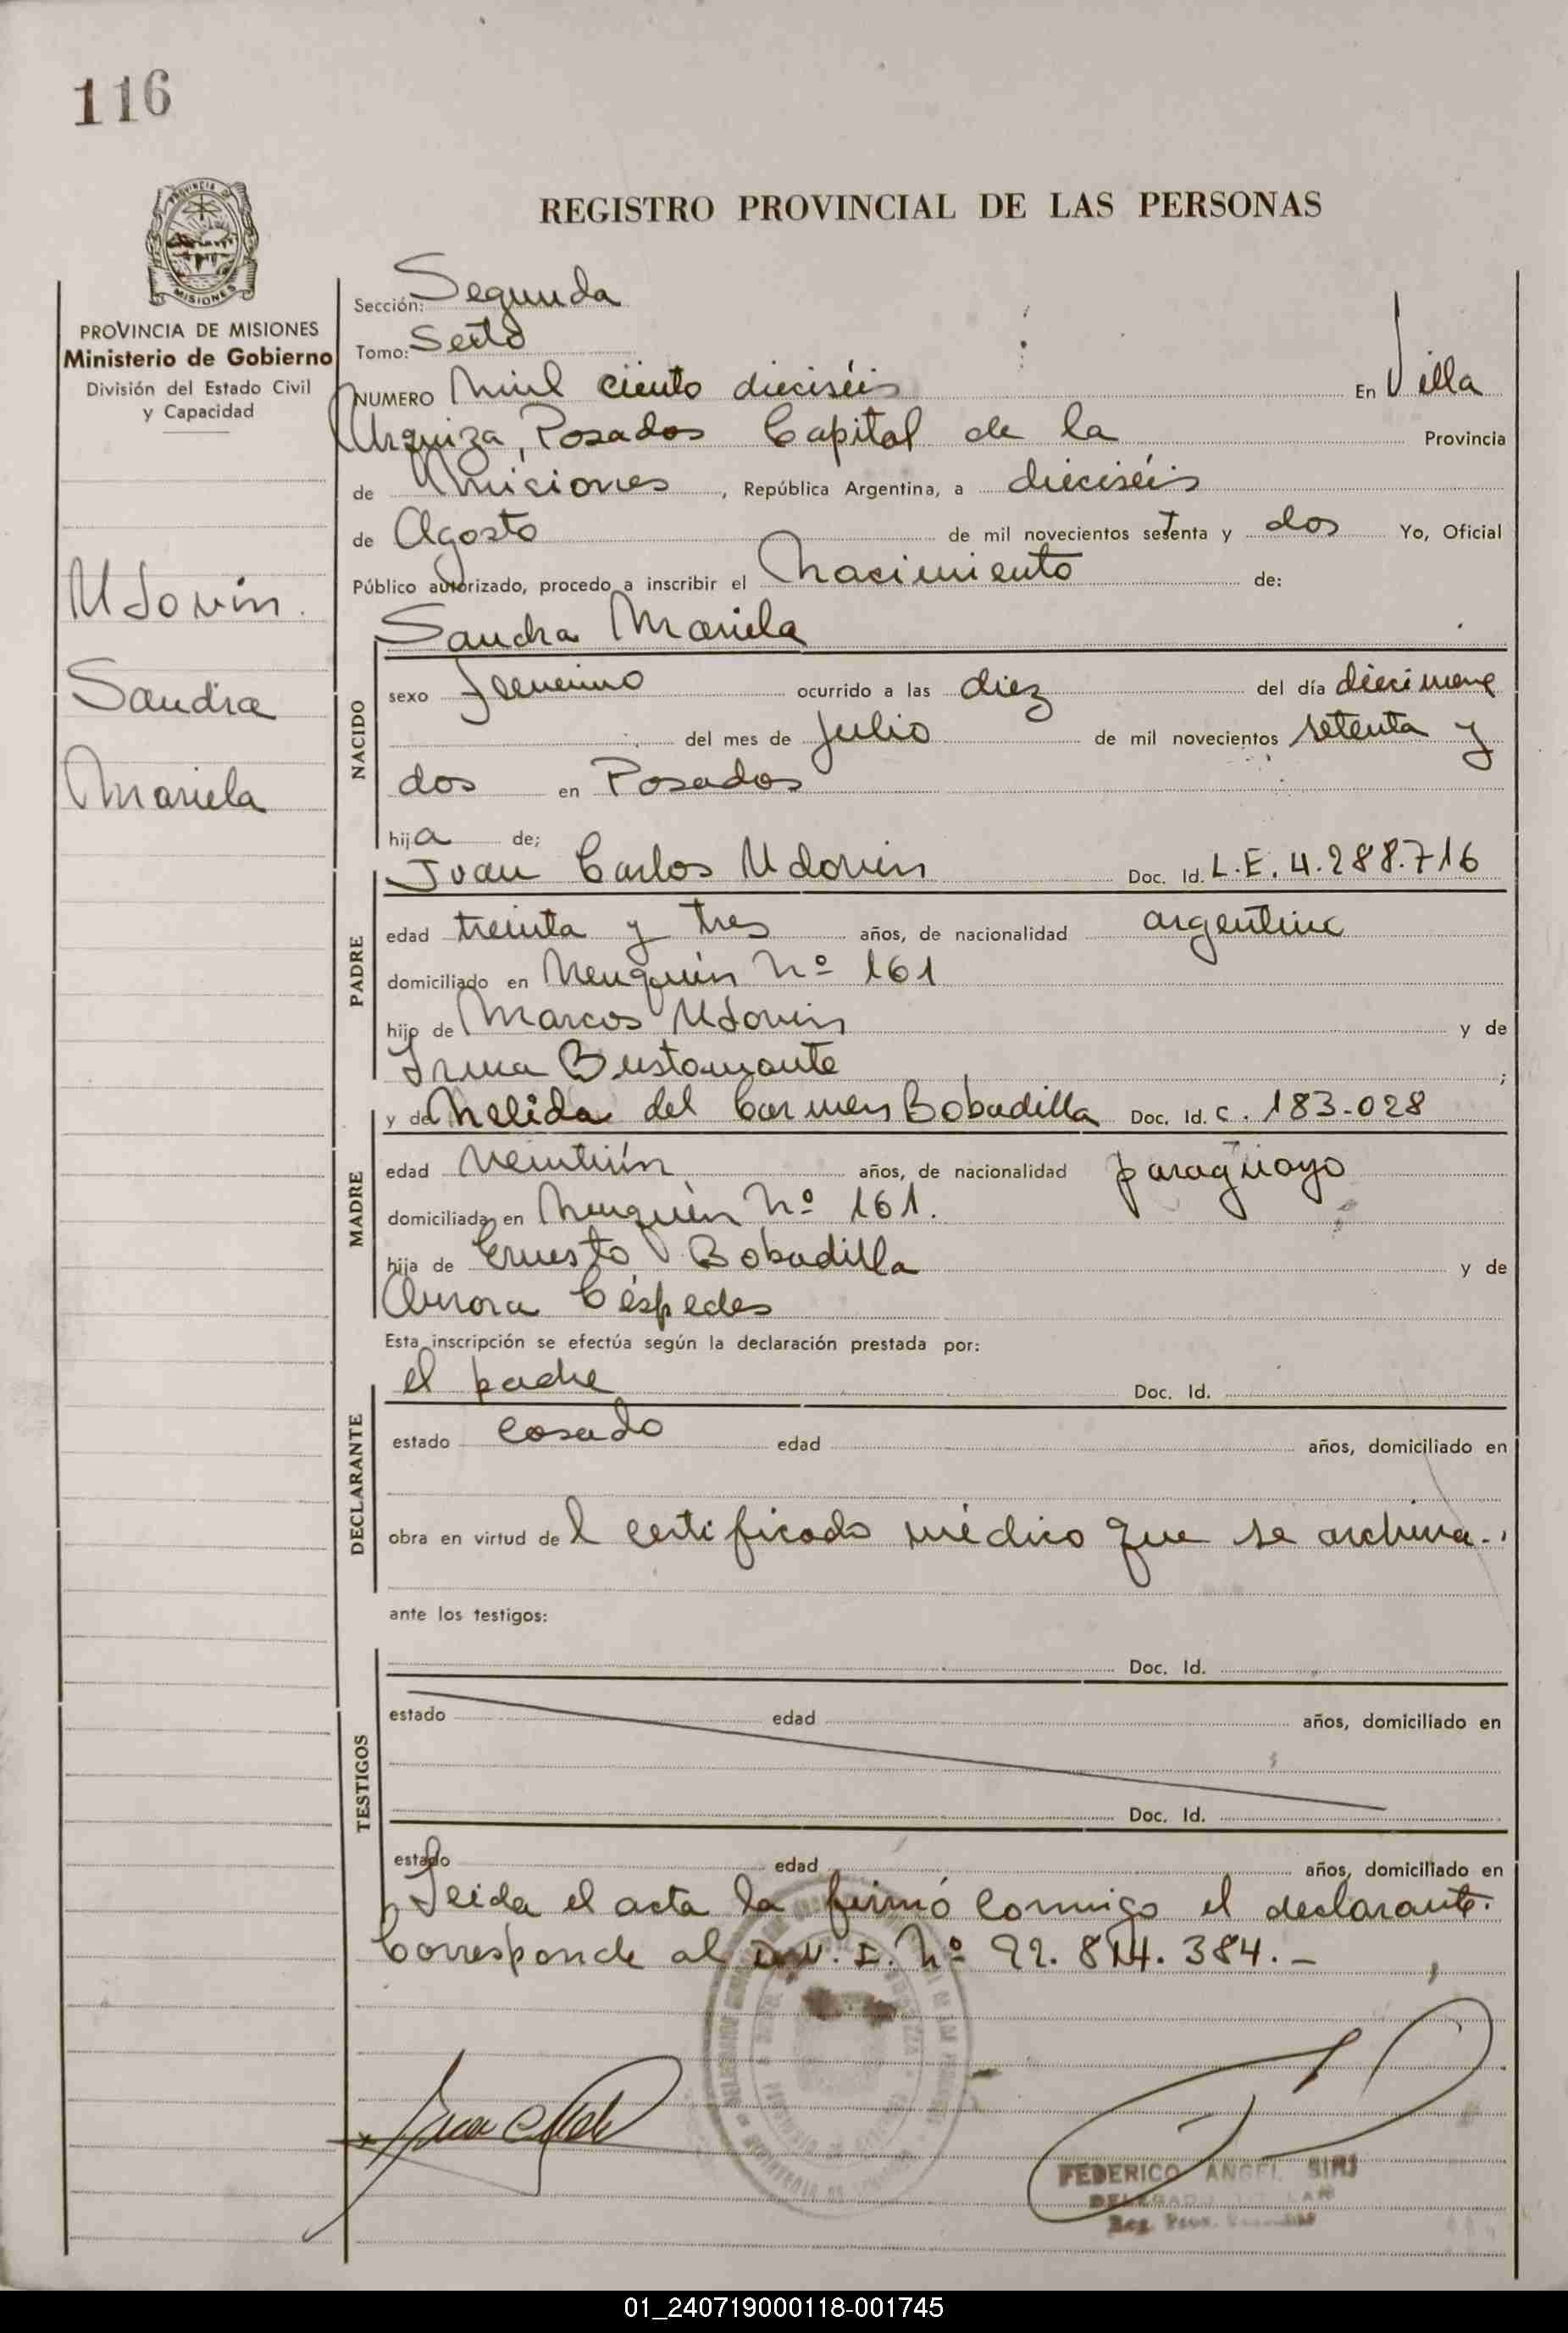 116
REGISTRO PROVINCIAL DE LAS PERSONAS
PROVINCIA DE
MISIONES
PROVINCIA DE MISIONES
Ministerio de Gobierno
División del Estado Civil
y Capacidad
Udovin.
Sandra
Mariela
Sección: Segunda
Tomo: Sexto
NUMERO Mil ciento dieciséis En Villa
Urquiza, Posadas Capital de la Provincia
de Misiones, República Argentina, a dieciséis
de Agosto de mil novecientos setenta y dos Yo, Oficial
Público autorizado, procedo a inscribir el Nacimiento de:
Sandra Mariela
NACIDO
sexo femenino ocurrido a las diez del día diecinueve
del mes de Julio de mil novecientos setenta y
dos en Posadas
hija de;
Juan Carlos Udovin Doc. Id. L.E. 4.288.716
PADRE
edad treinta y tres años, de nacionalidad argentina
domiciliado en Neuquén Nº 161
hijo de Marcos Udovin y de
Irma Bustamante ;
y de Nelida del Carmen Bobadilla Doc. Id. C. 183-028
MADRE
edad Veintiún años, de nacionalidad paragüaya
domiciliada en Neuquén Nº 161.
hija de Ernesto Bobadilla y de
Aurora Céspedes
Esta inscripción se efectúa según la declaración prestada por:
el padre Doc. Id.
DECLARANTE
estado casado edad años, domiciliado en
obra en virtud del certificado médico que se archiva.
ante los testigos:
Doc. Id.
TESTIGOS
estado edad años, domiciliado en
Doc. Id.
estado edad años, domiciliado en
Leida el acta la firmó conmigo el declarante.
Corresponde al D.N.I. Nº 92.814.384.-
FEDERICO ANGEL
01_240719000118-001745